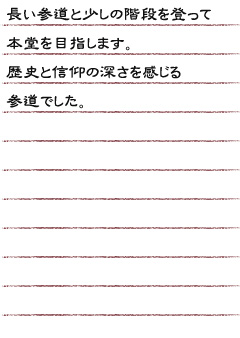 長い参道と少しの階段を登って
本堂を目指します。
歴史と信仰の深さを感じる
参道でした。